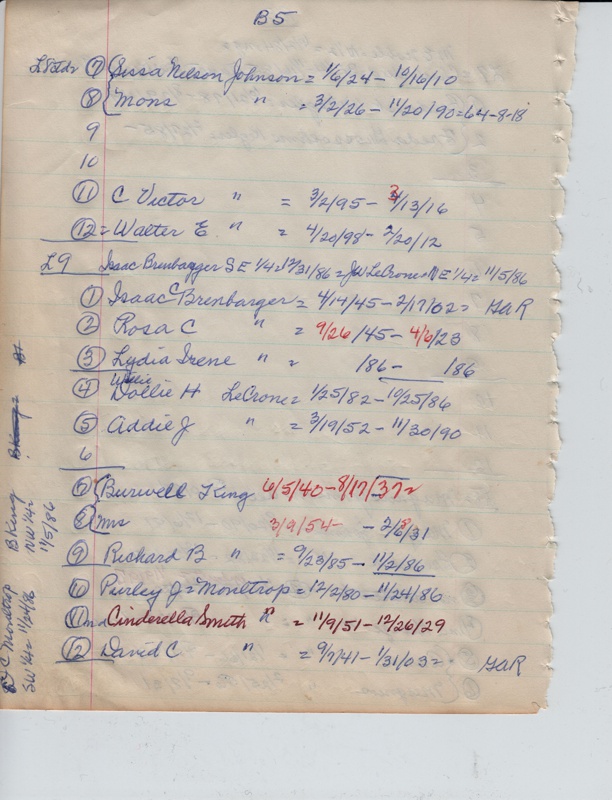 B5
7 Sissa Nelson Johnson = 1/6/24 - 10/16/10
8 Mons " = 3/2/26 - 11/20/90 = 64-8-18
9
10
11 C Victor " = 3/2/95 - 3/13/16
12 = Walter E. " = 4/20/98 - 2/20/12
L9 Isaac Brenbarger SE 1/4 = 12/31/86 = JW LeCrone = NE 1/4 = 11/5/86
1 Isaac C Brenbarger = 4/14/45 - 2/17/02 = GAR
2 Rosa C " = 9/26/45 - 4/6/23
3 Lydia Irene " = /86 - /86
4 Dollie H LeCrone = 1/25/82 - 10/25/86
5 Addie J " = 3/19/52 - 11/30/90
6
7 Burwell King 6/5/40 - 8/17/37 =
8 Mrs 3/9/54 - 2/8/31
9 Richard B " = 9/23/85 - 11/2/86
10 Purley J = Monttrop = 12/2/80 - 11/24/86
11 Cinderella Smith " = 11/9/51 - 12/26/29
12 David C " = 9/7/41 - 1/31/03 = GAR
B King
NW 1/4 =
11/5/86
C Monttrop
SW 1/4 = 11/24/86